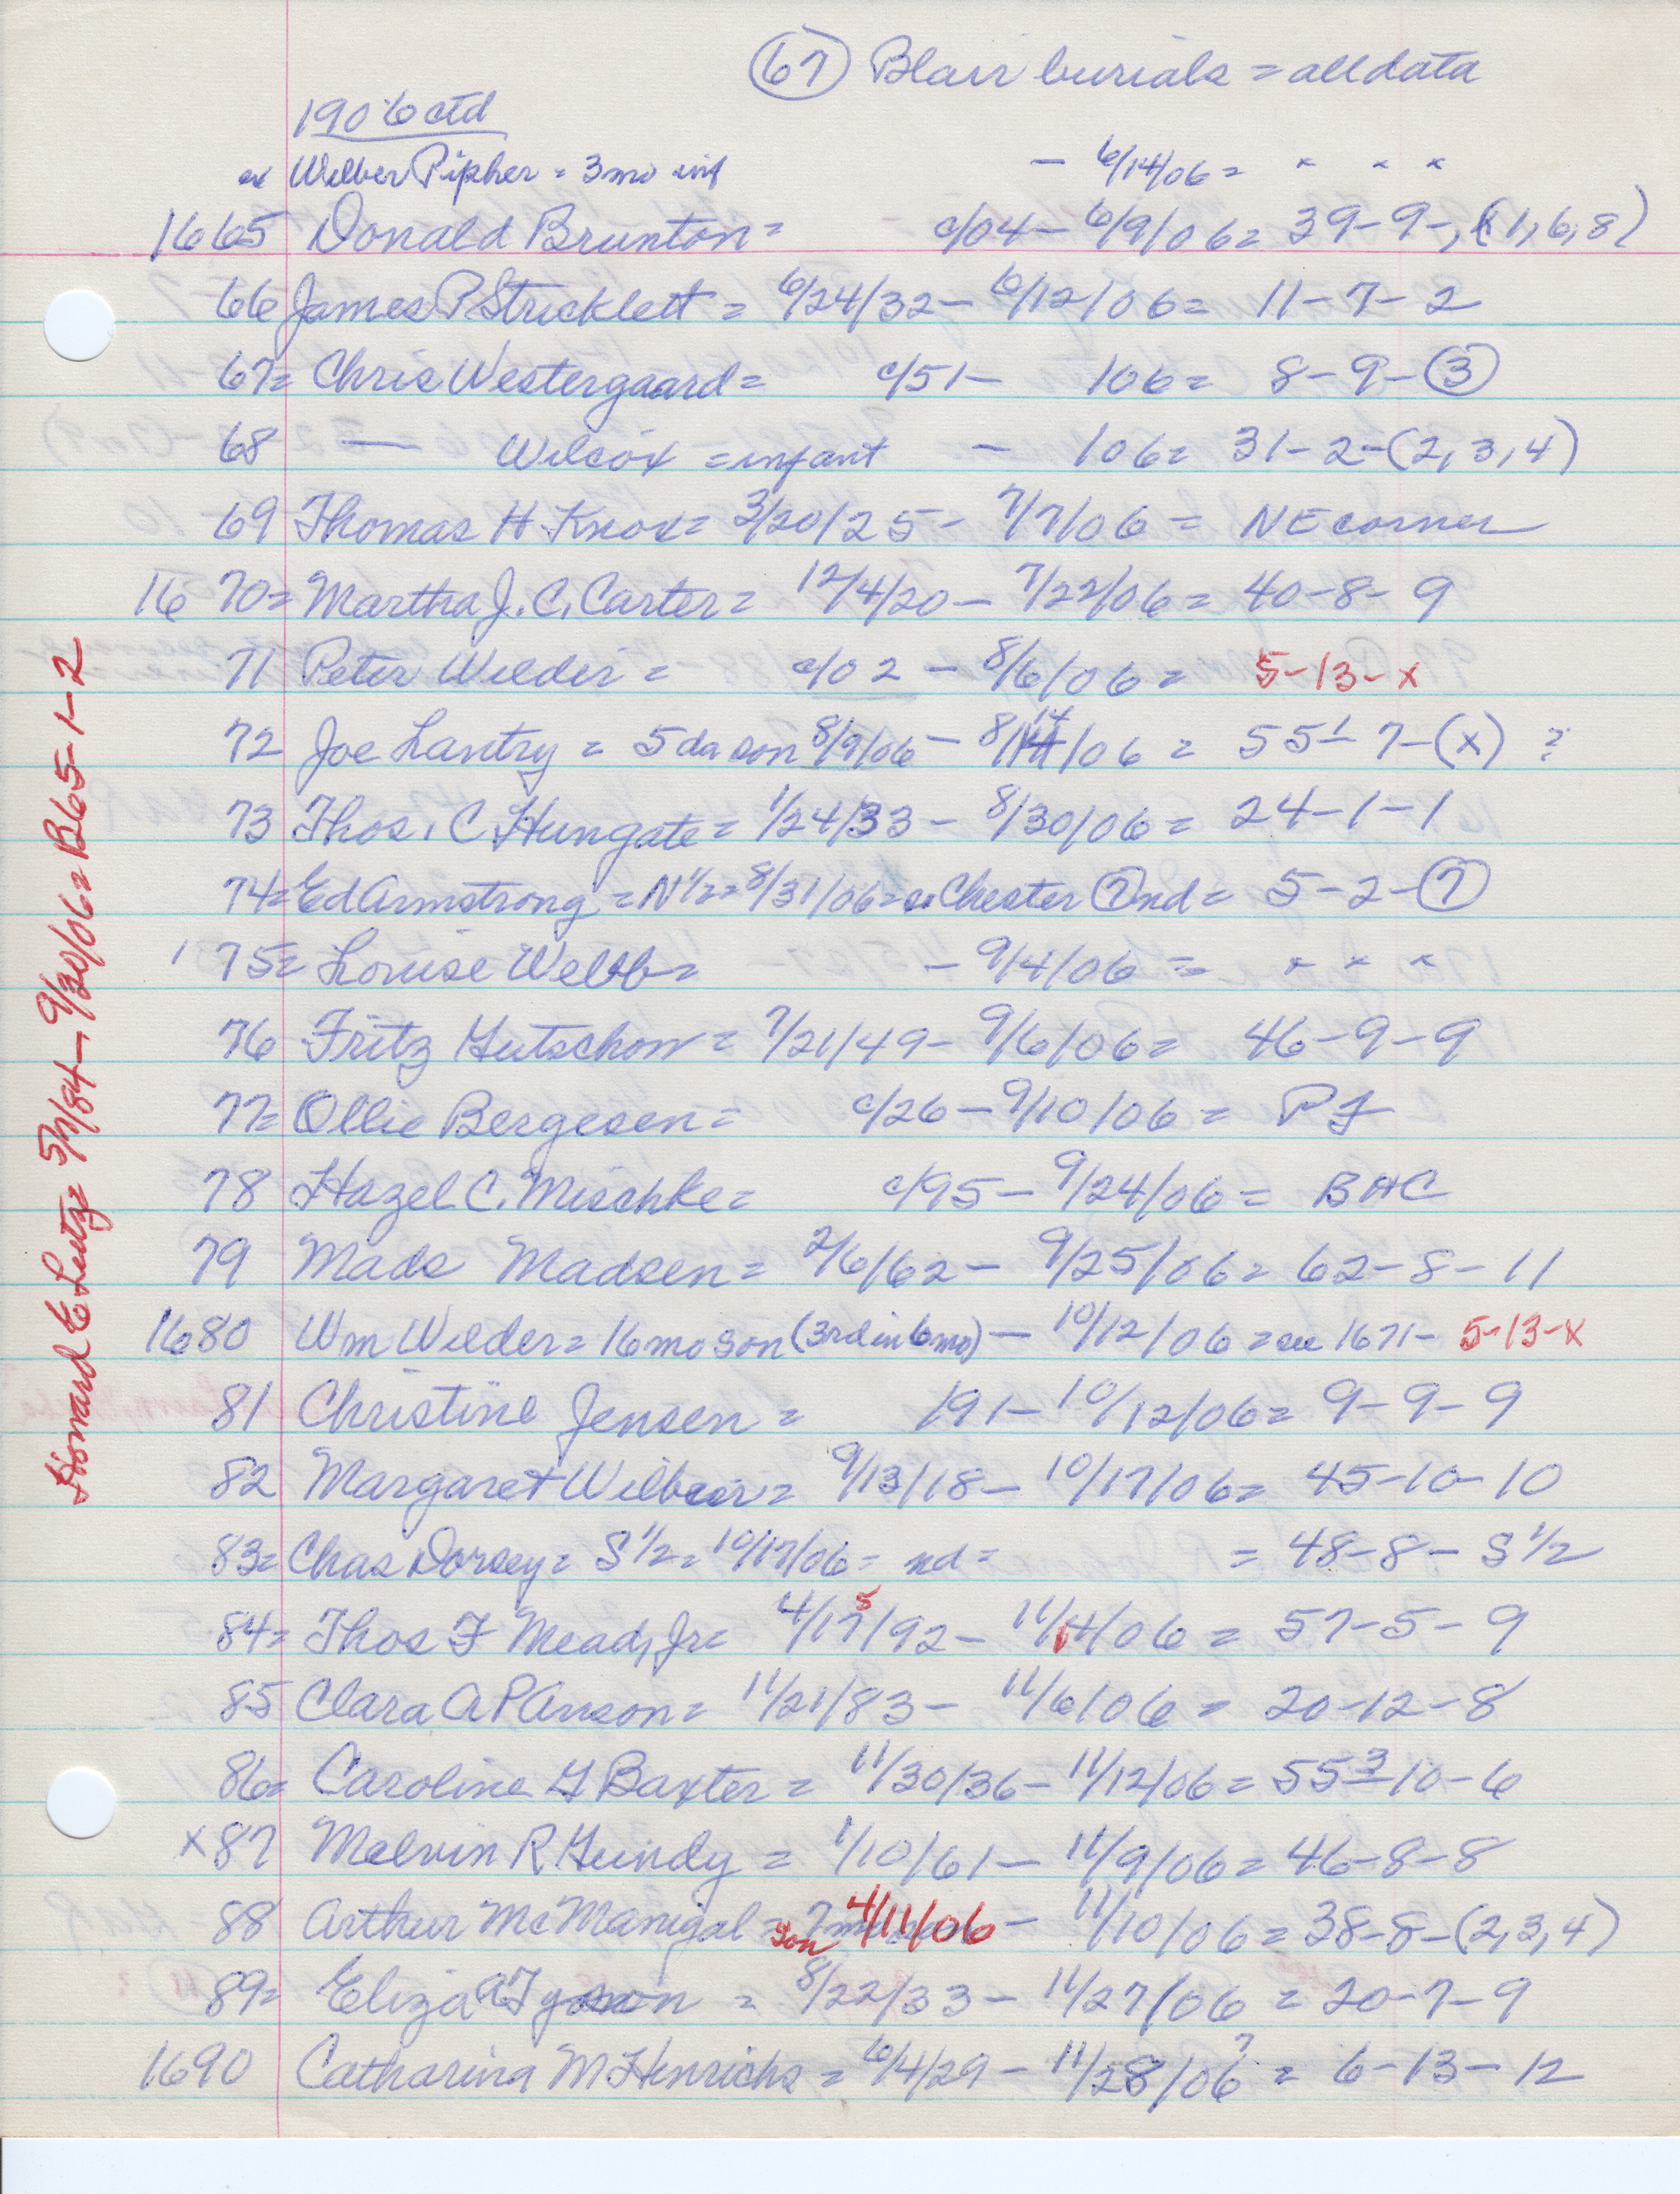 (67) Blair burials = all data
1906 ctd
Wilber Pipher = 3 mo inf — 6/14/06 = " " "
1665 Donald Brunton = c/04 — 6/9/06 = 39-9-, (1, 6, 8)
66 James P Stricklett = 6/24/32 — 6/12/06 = 11-7-2
67 = Chris Westergaard = c/51 — /06 = 8-9-(3)
68 — Wilcox = infant — /06 = 31-2-(2, 3, 4)
69 Thomas H Knox = 3/20/25 — 7/7/06 = NE corner
1670 = Martha J. C. Carter = 12/4/20 — 7/22/06 = 40-8-9
71 Peter Wilder = c/02 — 8/6/06 = 5-13-x
72 Joe Lantry = 5 da son 8/9/06 — 8/14/06 = 55 1-7-(x) ?
73 Thos. C. Hungate = 1/24/33 — 8/30/06 = 24-1-1
74 = Ed Armstrong = N 1/2 = 8/31/06 = Chester (?) nd = 5-2-(7)
' 75 = Louise Webb = — 9/4/06 = " " "
76 Fritz Gutschow = 7/21/49 — 9/6/06 = 46-9-9
77 = Ollie Bergesen = c/26 — 9/10/06 = PF
78 Hazel C. Mischke = c/95 — 9/24/06 = BHC
79 Mads Madsen = 2/6/62 — 9/25/06 = 62-8-11
1680 Wm Wilder = 16 mo son (3rd in 6 mo) — 10/12/06 = see 1671 - 5-13-x
81 Christine Jensen = /91 — 10/12/06 = 9-9-9
82 Margaret Wilbur = 9/13/18 — 10/17/06 = 45-10-10
83 = Chas Dorsey = S 1/2 = 10/17/06 = nd = = 48-8- S 1/2
84 = Thos F Mead, Jr = 4/15/92 — 11/4/06 = 57-5-9
85 Clara A P Anson = 11/21/83 — 11/6/06 = 20-12-8
86 = Caroline G Baxter = 11/30/36 — 11/12/06 = 55 3-10-6
x 87 Melvin R Gundy = 1/10/61 — 11/9/06 = 46-8-8
88 Arthur McManigal = son 4/11/06 — 11/10/06 = 38-8-(2, 3, 4)
89 = Eliza A Tyson = 8/22/33 — 11/27/06 = 20-7-9
1690 Catharina M Henrichs = 6/4/29 — 11/28/06 ? = 6-13-12
Howard E Lutz = 5/7/84 — 9/30/06 = B65-1-2